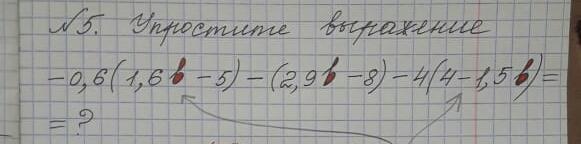 №5. Упростите выражение
-0,6(1,6в-5)-(2,9в-8)-4(4-1,5в)=
=?